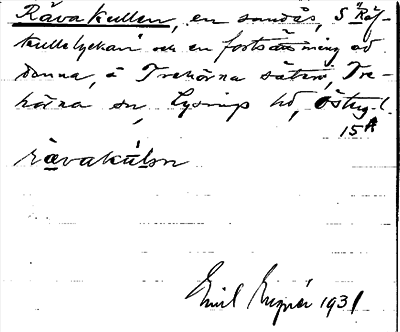 Rävakullen, en sandås, S Räf-
kullelyckan och en fortsättning av
denna, å Trehörna säteri, Tre-
hörna sn, Lysings hd, Östergl.
15A
rävakulən
Emil 1931